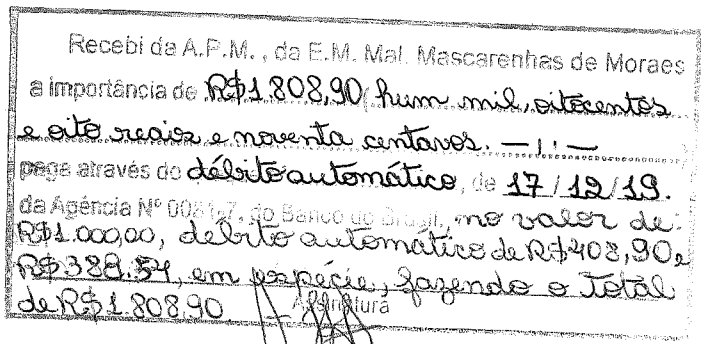 Recebi da A.P.M., da E.M. Mal. Mascarenhas de Moraes
a importância de R$1.808,90 (hum mil, oitocentos
e oito reais e noventa centavos. — | . —
paga através do débito automático, de 17/12/19.
da Agência Nº do Banco do Brasil, no valor de:
R$1.000,00, débito automático de R$408,90 e
R$388.54, em espécie, fazendo o Total
de R$1.808,90. Assinatura